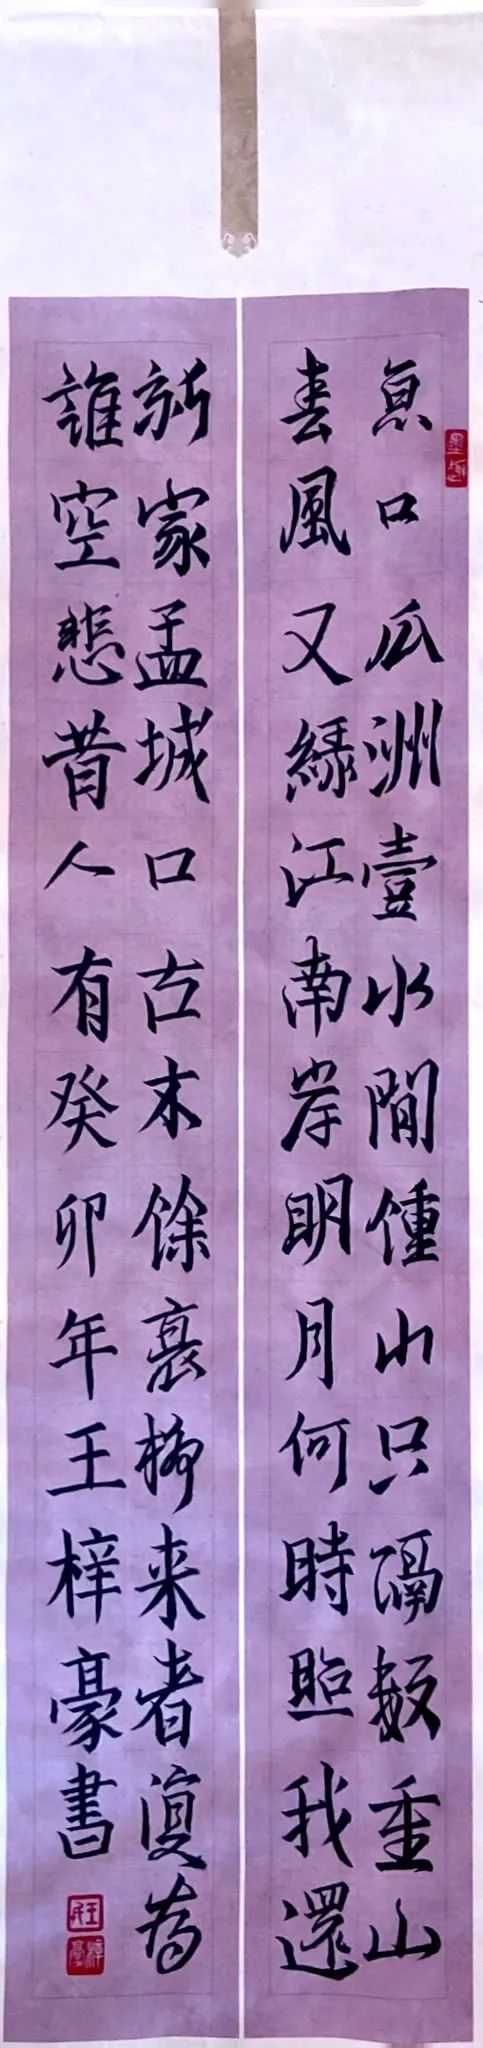 京口瓜洲壹水間鍾山只隔數重山
春風又緑江南岸明月何時照我還
新家孟城口古木餘衰柳来者復為
誰空悲昔人有癸卯年王梓豪書